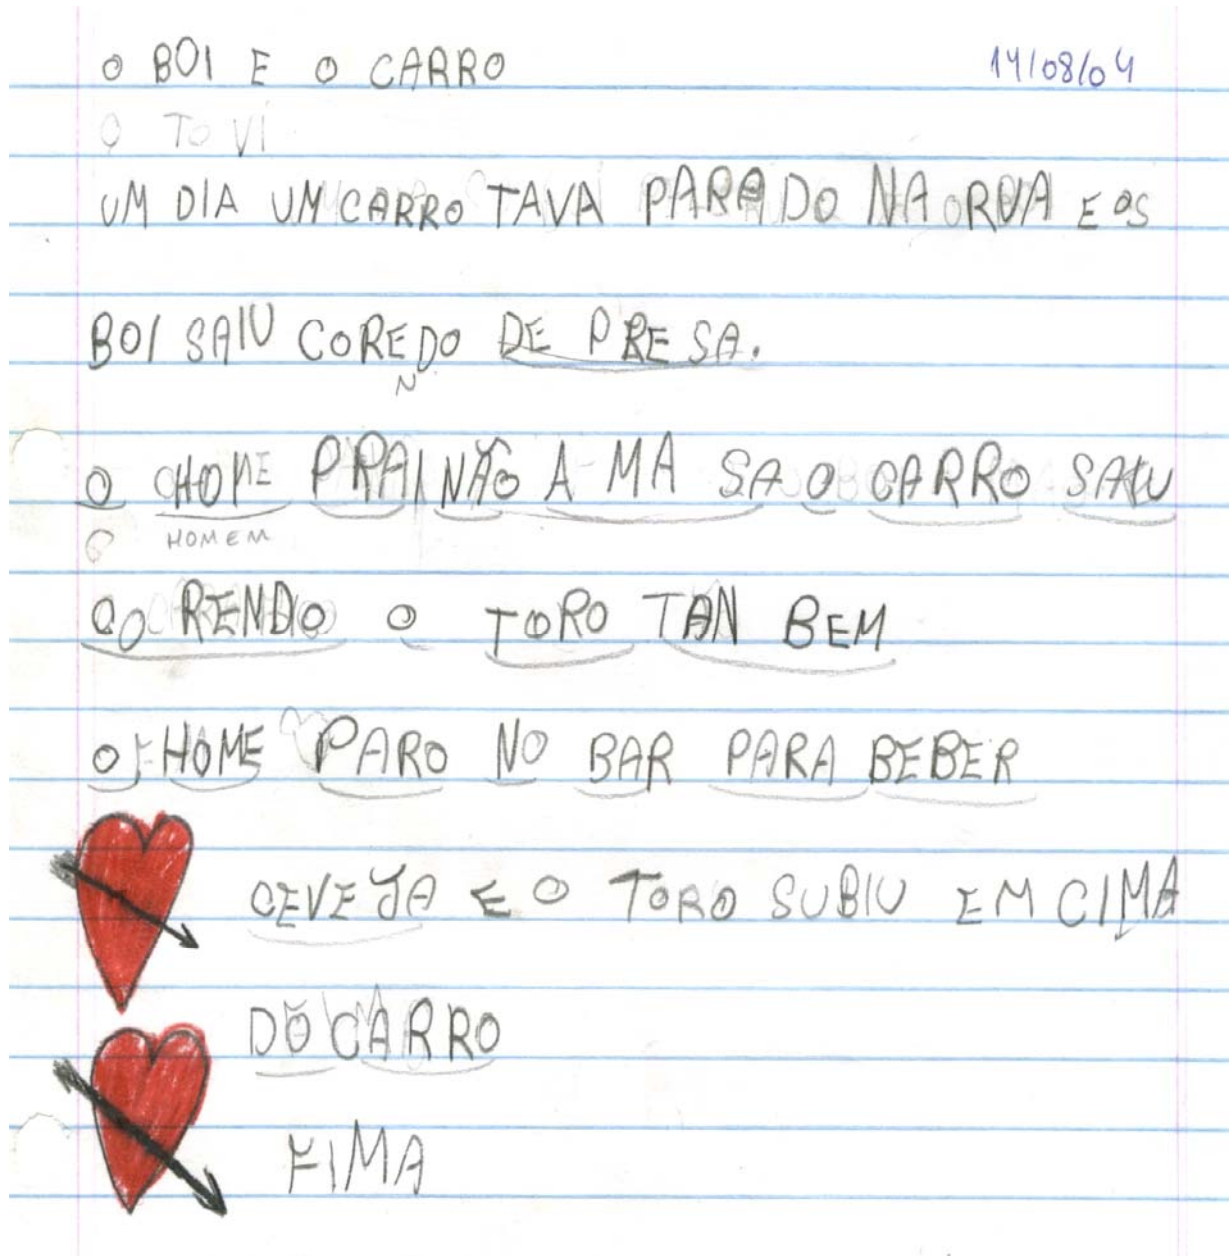 O BOI E O CARRO 14/08/04
O TO VI
UM DIA UM CARRO TAVA PARADO NA RUA E OS
BOI SAIU COREDO DE PRESA.
N
O HOME PRAI NÃO A MA SA O CARRO SAIU
HOMEM
CO RENDO O TORO TAN BEM
O HOME PARO NO BAR PARA BEBER
CEVEJA E O TORO SUBIU EM CIMA
DO CARRO
FIMA